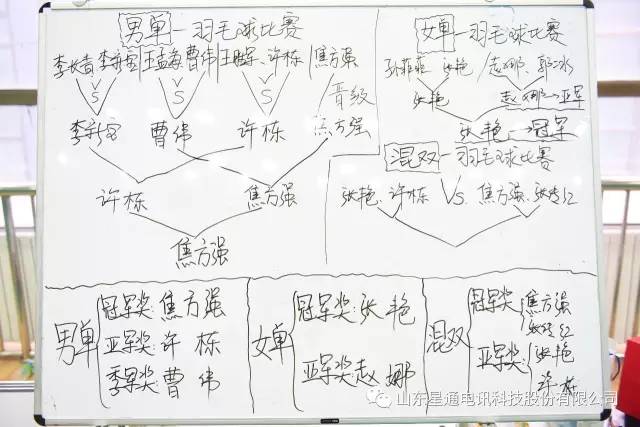 男单-羽毛球比赛
李长青 李新宝 王孟海 曹伟 王晓军、许栋 焦方强
VS VS VS 晋级
李新宝 曹伟 许栋 焦方强
许栋 焦方强
焦方强
女单-羽毛球比赛
孙菲菲 张艳 赵娜、郭冰
张艳 赵娜→亚军
张艳→冠军
混双-羽毛球比赛
张艳、许栋 VS. 焦方强、张
男单
冠军奖:焦方强
亚军奖:许栋
季军奖:曹伟
女单
冠军奖:张艳
亚军奖:赵娜
混双
冠军奖:焦方强
张
亚军奖:张艳
许栋
山东星通电讯科技股份有限公司